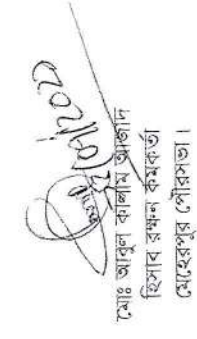 মোঃ আবুল কালাম আজাদ
হিসাব রক্ষন কর্মকর্তা
মেহেরপুর পৌরসভা।